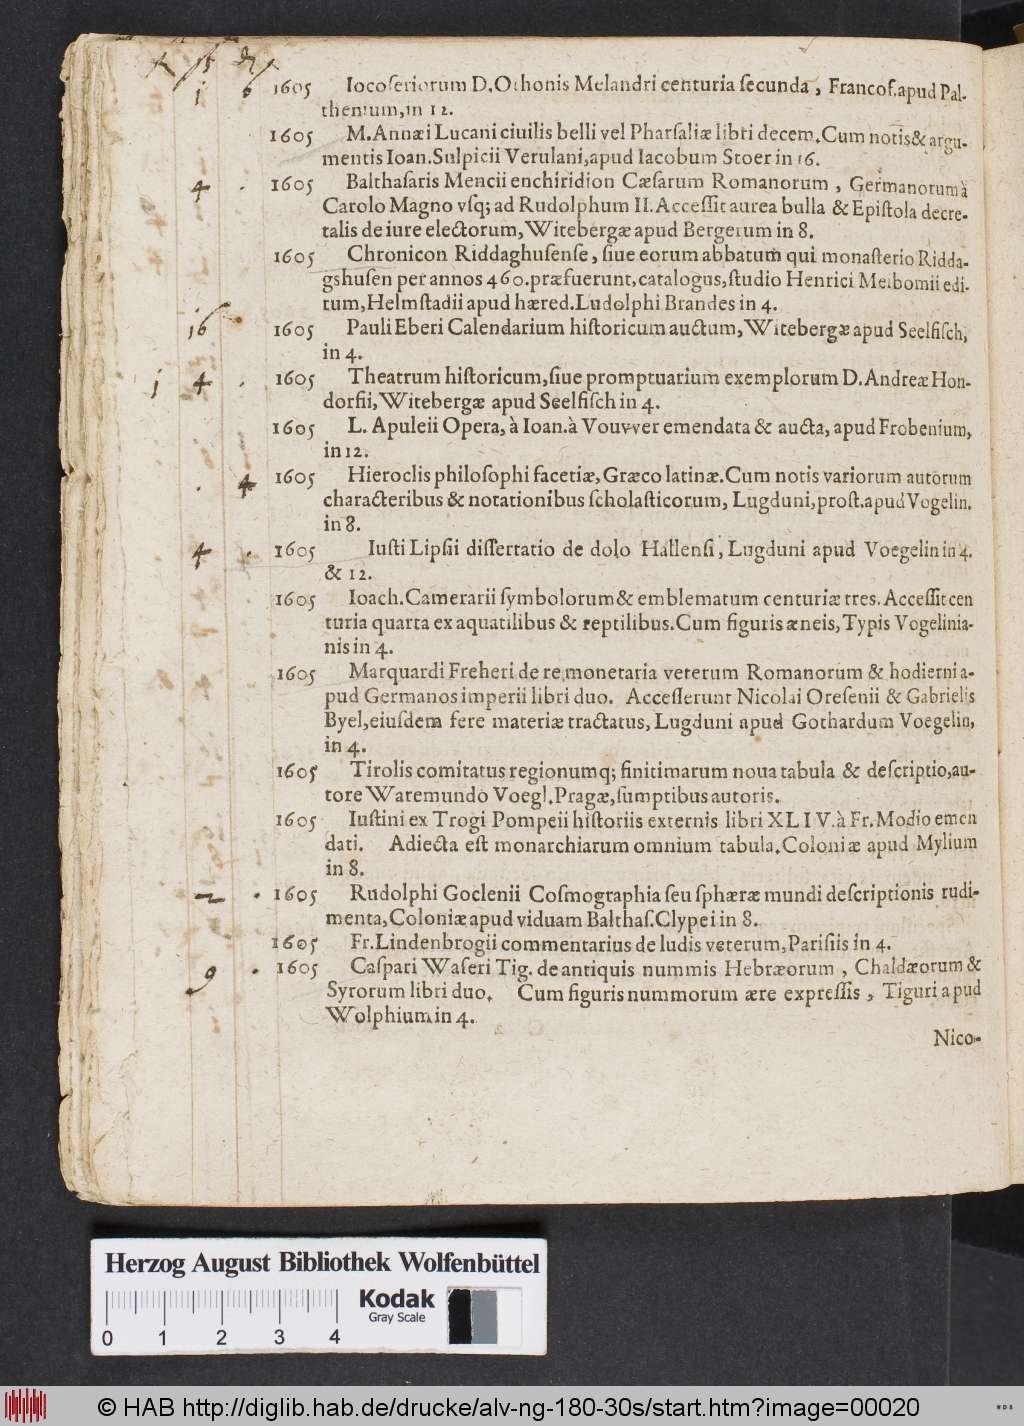 1 6 1605 Iocoſeriorum D.Othonis Melandri centuria ſecunda, Francof.apud Pal-
thenium,in 12.
1605 M.Annæi Lucani ciuilis belli vel Pharſaliæ libri decem.Cum notis & argu-
mentis Ioan.Sulpicii Verulani,apud Iacobum Stoer in 16.
4 . 1605 Balthaſaris Mencii enchiridion Cæſarum Romanorum, Germanorum à
Carolo Magno vſq; ad Rudolphum II.Acceſſit aurea bulla & Epiſtola decre-
talis de iure electorum, Witebergæ apud Bergerum in 8.
1605 Chronicon Riddaghuſenſe, ſiue eorum abbatum qui monaſterio Ridda-
gshuſen per annos 460.præfuerunt,catalogus,ſtudio Henrici Meibomii edi-
tum,Helmſtadii apud hæred.Ludolphi Brandes in 4.
16 1605 Pauli Eberi Calendarium hiſtoricum auctum, Witebergæ apud Seelfiſch,
in 4.
1 4 . 1605 Theatrum hiſtoricum,ſiue promptuarium exemplorum D.Andreæ Hon-
dorfii, Witebergæ apud Seelfiſch in 4.
1605 L. Apuleii Opera, à Ioan.à Vouvver emendata & aucta, apud Frobenium,
in 12.
. 4 1605 Hieroclis philoſophi facetiæ,Græco latinæ.Cum notis variorum autorum
characteribus & notationibus ſcholaſticorum, Lugduni,proſt.apud Vogelin.
in 8.
4 . 1605 Iuſti Lipſii diſſertatio de dolo Hallenſi, Lugduni apud Voegelin in 4.
& 12.
1605 Ioach.Camerarii ſymbolorum & emblematum centuriæ tres. Acceſſit cen
turia quarta ex aquatilibus & reptilibus.Cum figuris æneis, Typis Vogelinia-
nis in 4.
1605 Marquardi Freheri de re monetaria veterum Romanorum & hodierni a-
pud Germanos imperii libri duo. Acceſſerunt Nicolai Oreſenii & Gabrielis
Byel,eiuſdem fere materiæ tractatus, Lugduni apud Gothardum Voegelin,
in 4.
1605 Tirolis comitatus regionumq; finitimarum noua tabula & deſcriptio,au-
tore Waremundo Voegl.Pragæ,ſumptibus autoris.
1605 Iuſtini ex Trogi Pompeii hiſtoriis externis libri XLIV.à Fr.Modio emen
dati. Adiecta eſt monarchiarum omnium tabula.Coloniæ apud Mylium
in 8.
2 . 1605 Rudolphi Goclenii Coſmographia ſeu ſphæræ mundi deſcriptionis rudi-
menta,Coloniæ apud viduam Balthaſ.Clypei in 8.
1605 Fr.Lindenbrogii commentarius de ludis veterum,Pariſiis in 4.
9 . 1605 Caſpari Waſeri Tig. de antiquis nummis Hebræorum, Chaldæorum &
Syrorum libri duo. Cum figuris nummorum ære expreſſis, Tiguri apud
Wolphium in 4.
Nico-
Herzog August Bibliothek Wolfenbüttel
0 1 2 3 4
Kodak
Gray Scale
© HAB http://diglib.hab.de/drucke/alv-ng-180-30s/start.htm?image=00020